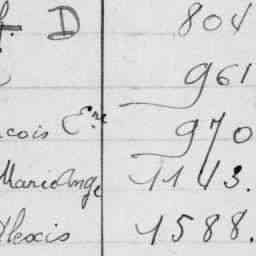 D 804
961
çois Ene 970
Marie Ange 1143.
Alexis 1588.